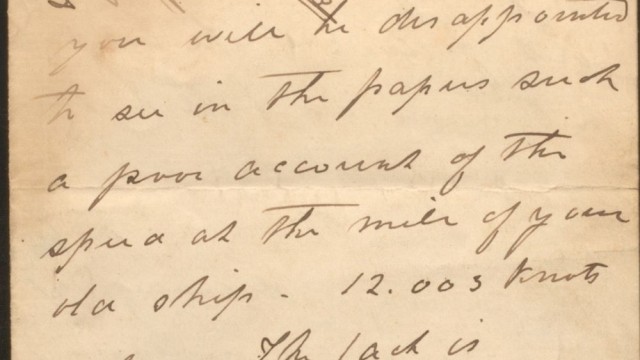 you will be disappointed
to see in the papers such
a poor account of the
speed at the mile of your
old ship. 12.003 Knots
The fact is